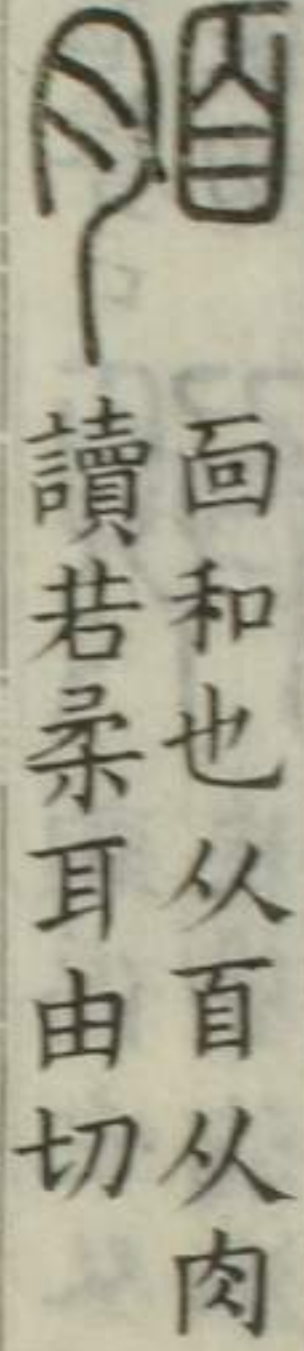 脜
靣和也从𦣻从肉
讀若柔耳由切